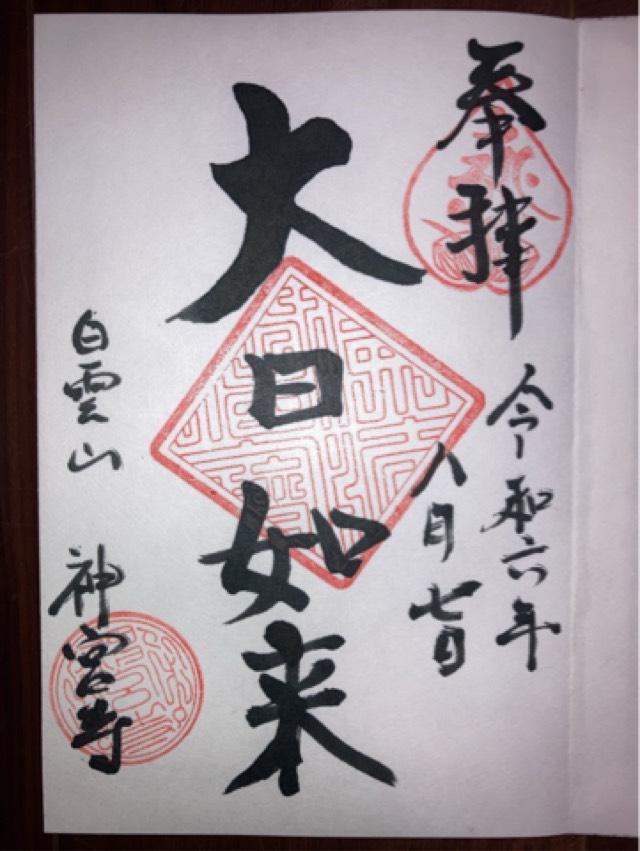 奉拝
令和六年
八月七日
大日如来
白雲山
神宮寺